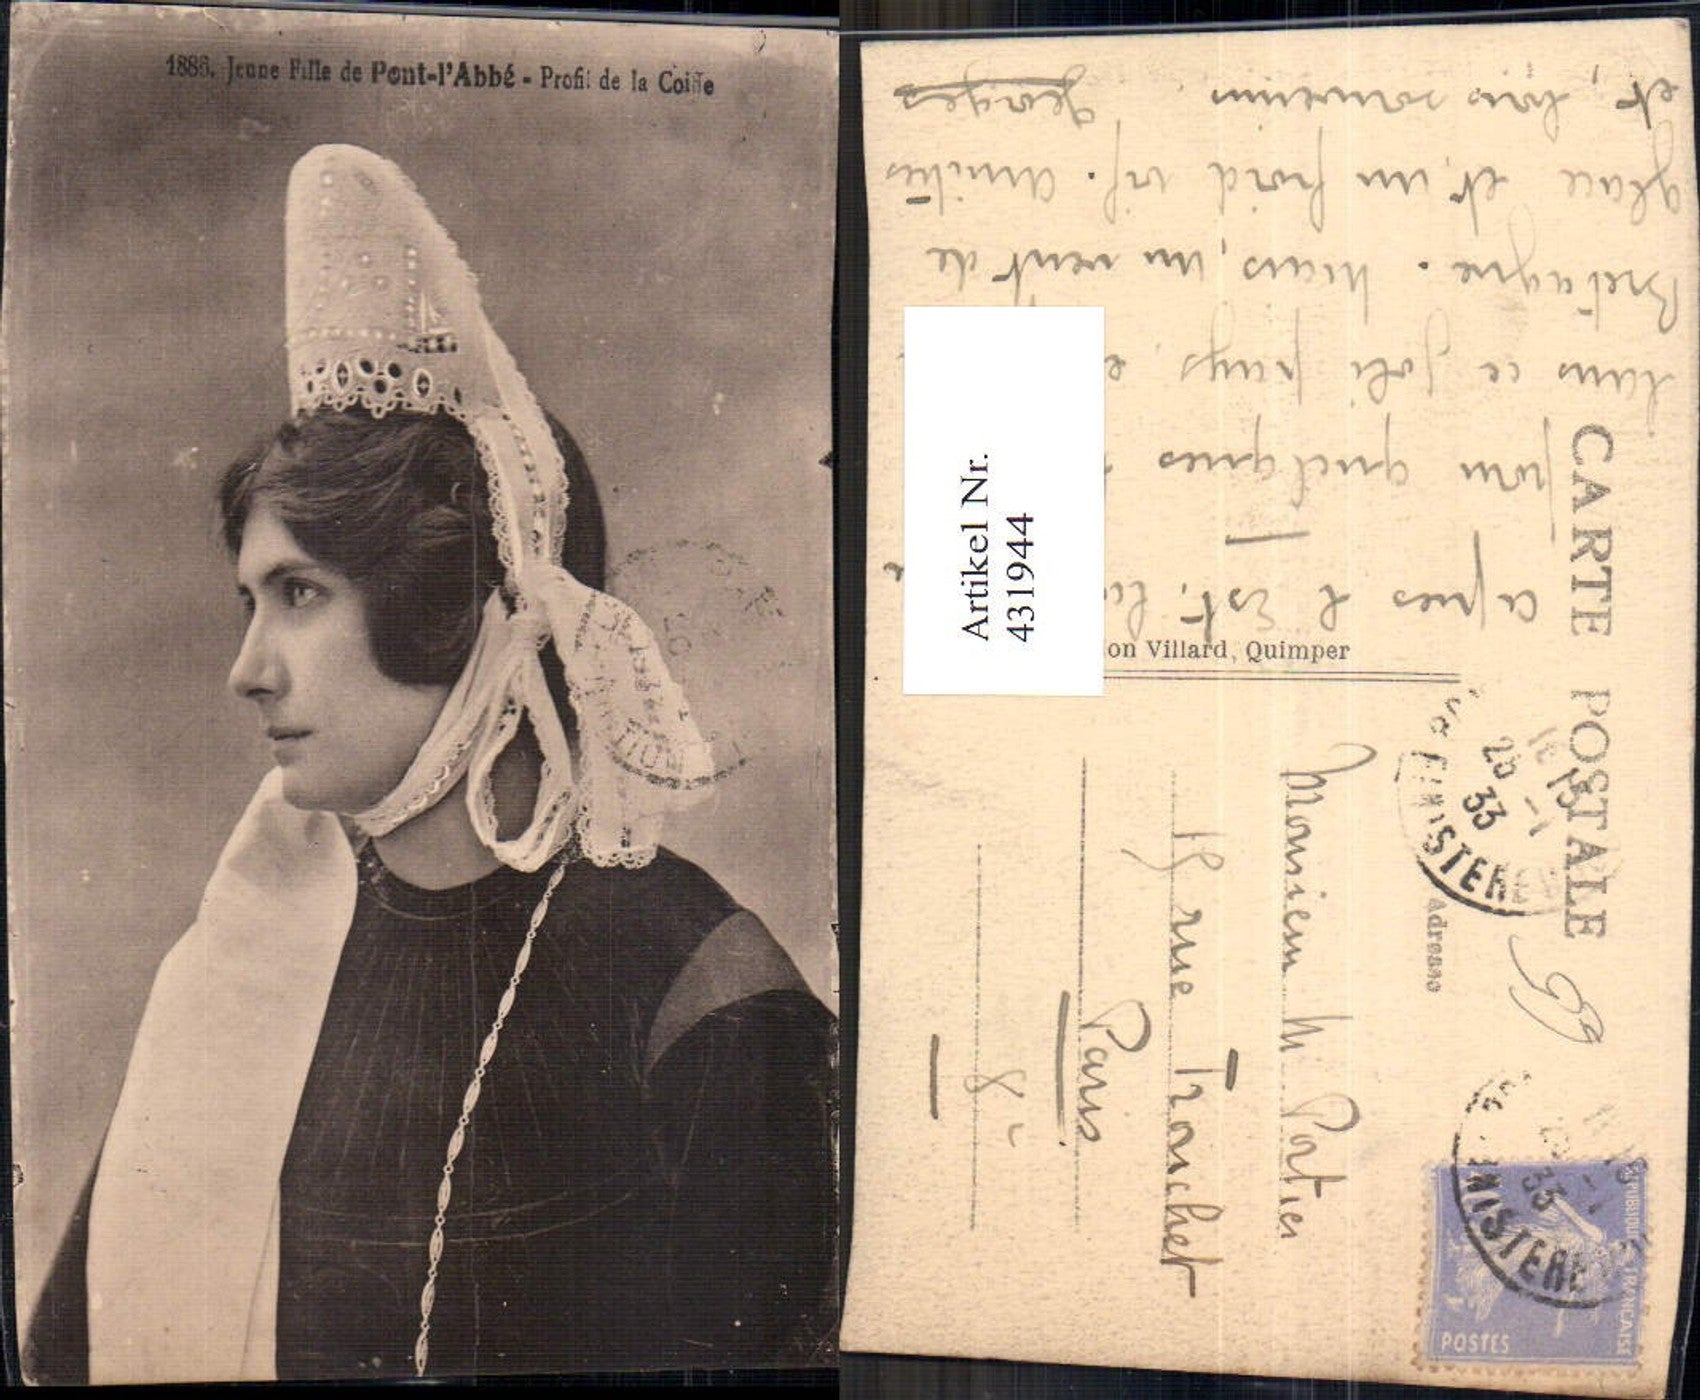 1886. Jeune Fille de Pont-l'Abbé - Profil de la Coiffe
CARTE POSTALE
Adresse
on Villard, Quimper
Artikel Nr.
431944
après l'Est, la
pour quelques
dans ce joli pays, e
Bretagne. Mais, un vent de
glace et, un froid vif. Amitiés
et, bons souvenirs. Georges
Monsieur M Portier
15 rue Tronchet
Paris
8e
FINISTERE
15
25 -1
33
FINISTERE
33
REPUBLIQUE FRANÇAISE
1F
POSTES